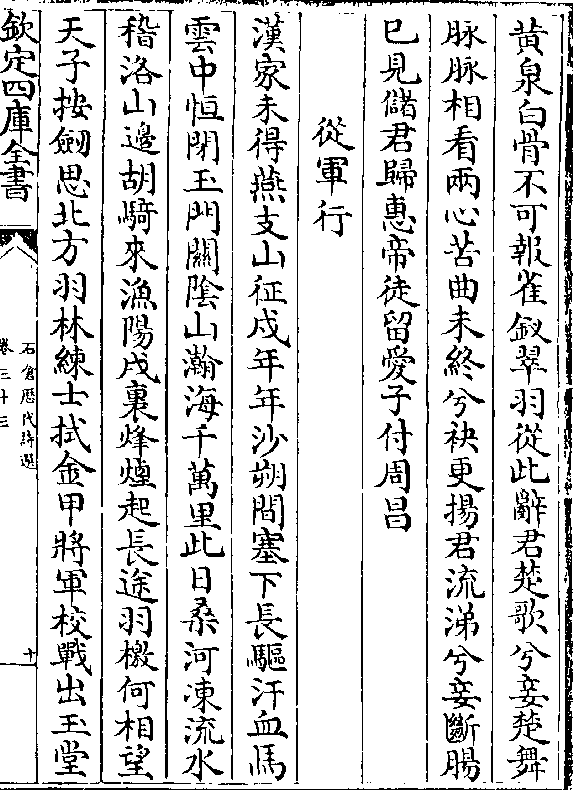 黄泉白骨不可報雀釵翠羽從此辭君楚歌兮妾楚舞
脉脉相看兩心苦曲未終兮袂更揚君流涕兮妾斷腸
已見儲君歸惠帝徒留愛子付周昌
從軍行
漢家未得燕支山征戍年年沙朔間塞下長驅汗血馬
雲中恒閉玉門關陰山瀚海千萬里此日桑河凍流水
稽洛山邊胡騎來漁陽戍裏烽煙起長途羽檄何相望
天子按劔思北方羽林練士拭金甲將軍校戰出玉堂
欽定四庫全書
石倉歴代詩選
卷三十三
十